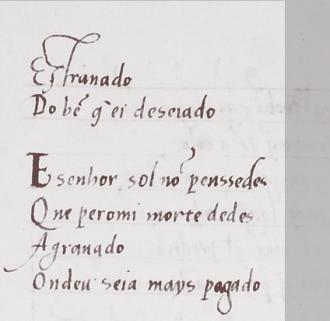 Estranado
Do bẽ q̃ ei deseiado
E senhor sol nõ penssedes
Que peromi morte dedes
Agranado
Ondeu seia mays pagado